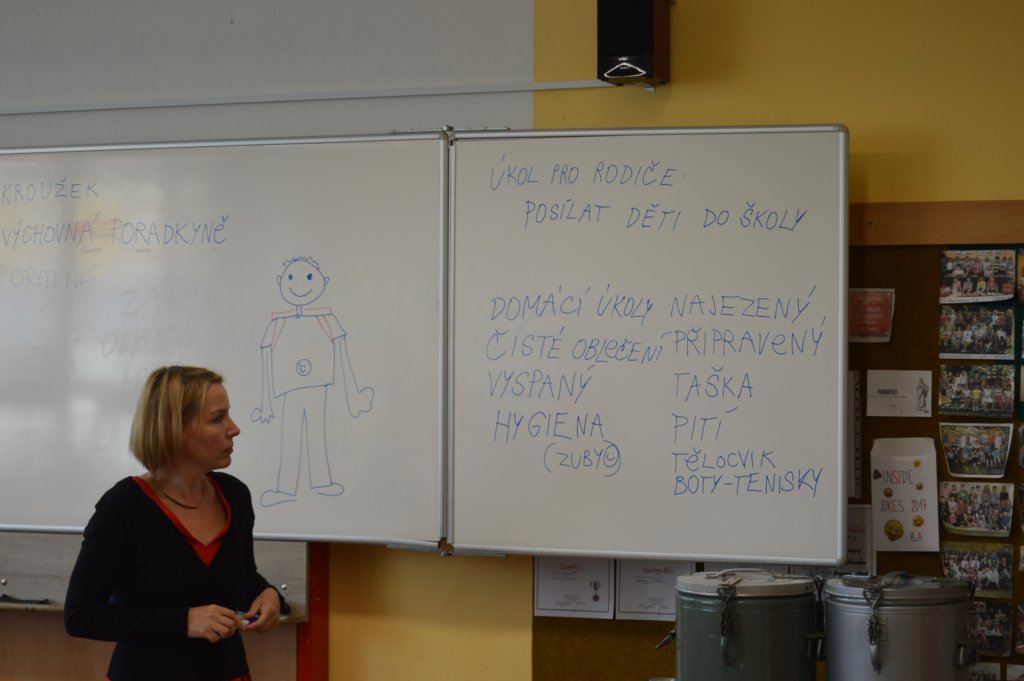 KROUŽEK
VÝCHOVNÁ PORADKYNĚ
PORADNA
ÚKOL PRO RODIČE:
POSÍLAT DĚTI DO ŠKOLY
DOMÁCÍ ÚKOLY
ČISTÉ OBLEČENÍ
VYSPANÝ
HYGIENA
(ZUBY)
NAJEZENÝ
PŘIPRAVENÝ
TAŠKA
PITÍ
TĚLOCVIK
BOTY-TENISKY
PAMATUJ
INSIDE
JOKES 2017
8.A